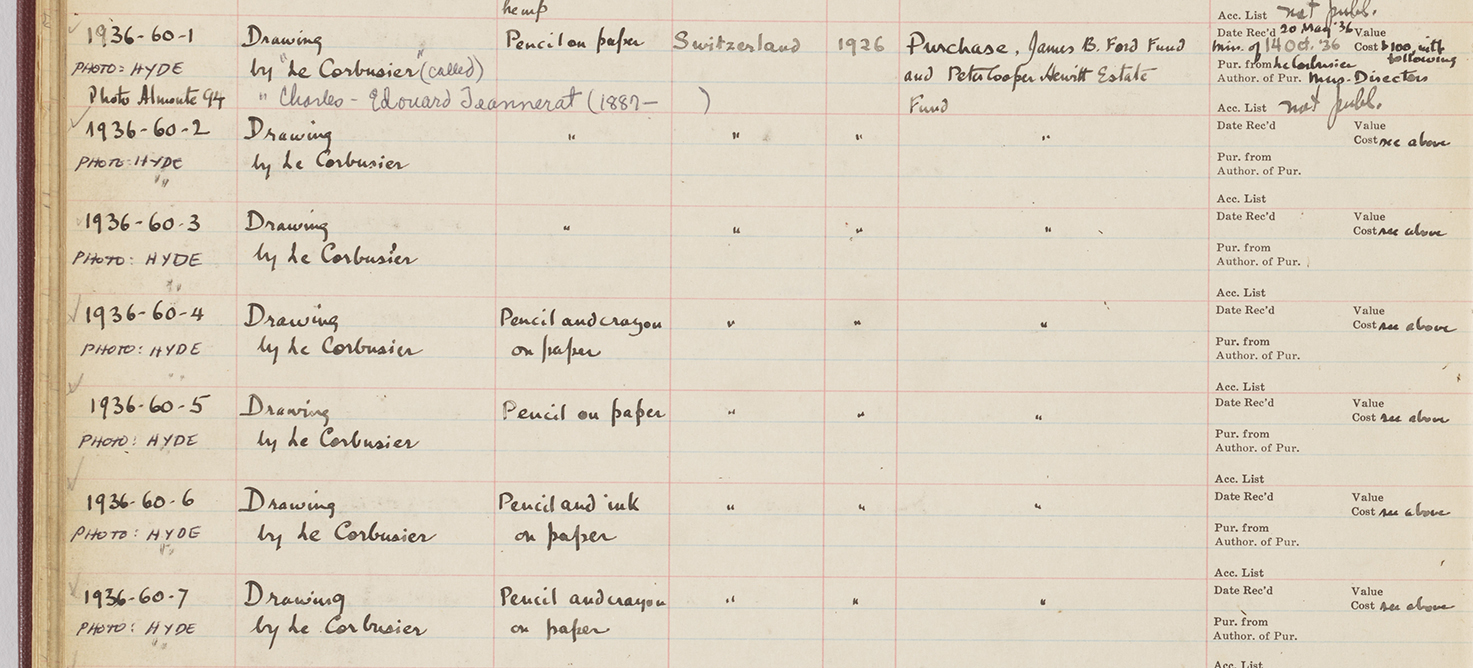 hemp
Acc. List not publ.
1936-60-1 Drawing Pencil on paper Switzerland 1926 Purchase, James B. Ford Fund Date Rec'd 20 May '36 Value
min. of 14 Oct. '36 Cost $100, with following
PHOTO: HYDE by "Le Corbusier" (called) and Peter Cooper Hewitt Estate Pur. from Le Corbusier
Author. of Pur. Directors
Photo Almonte 94 " Charles-Edouard Jeannerat (1887- ) Fund Acc. List not publ.
1936-60-2 Drawing " " " " Date Rec'd Value
Cost see above
PHOTO: HYDE by Le Corbusier Pur. from
Author. of Pur.
"
Acc. List
1936-60-3 Drawing " " " " Date Rec'd Value
Cost see above
PHOTO: HYDE by Le Corbusier Pur. from
Author. of Pur.
"
Acc. List
1936-60-4 Drawing Pencil and crayon " " " Date Rec'd Value
Cost see above
PHOTO: HYDE by Le Corbusier on paper Pur. from
Author. of Pur.
"
Acc. List
1936-60-5 Drawing Pencil on paper " " " Date Rec'd Value
Cost see above
PHOTO: HYDE by Le Corbusier Pur. from
Author. of Pur.
Acc. List
1936-60-6 Drawing Pencil and ink " " " Date Rec'd Value
Cost see above
PHOTO: HYDE by Le Corbusier on paper Pur. from
Author. of Pur.
"
Acc. List
1936-60-7 Drawing Pencil and crayon " " " Date Rec'd Value
Cost see above
PHOTO: HYDE by Le Corbusier on paper Pur. from
Author. of Pur.
"
Acc. List